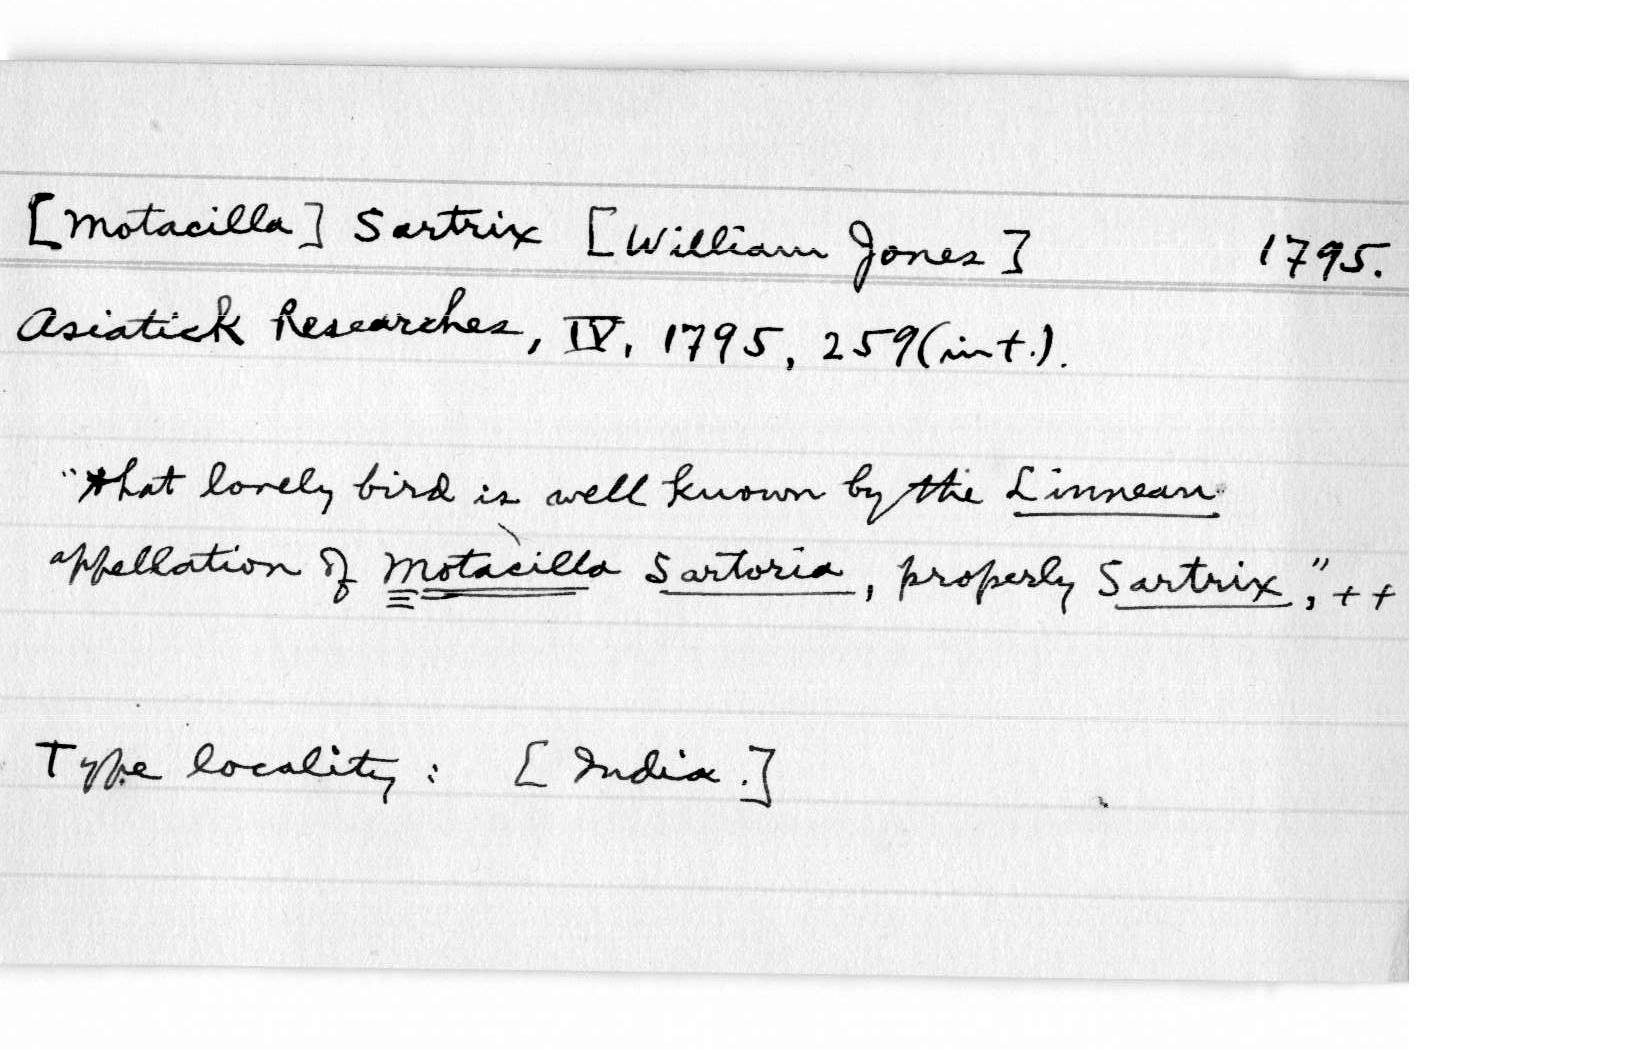 [Motacilla] Sartrix [William Jones] 1795.
Asiatick Researches, IV, 1795, 259(int.).
"that lovely bird is well known by the Linnean
appellation of Motacilla Sartoria, properly Sartrix," + +
Type locality: [India.]